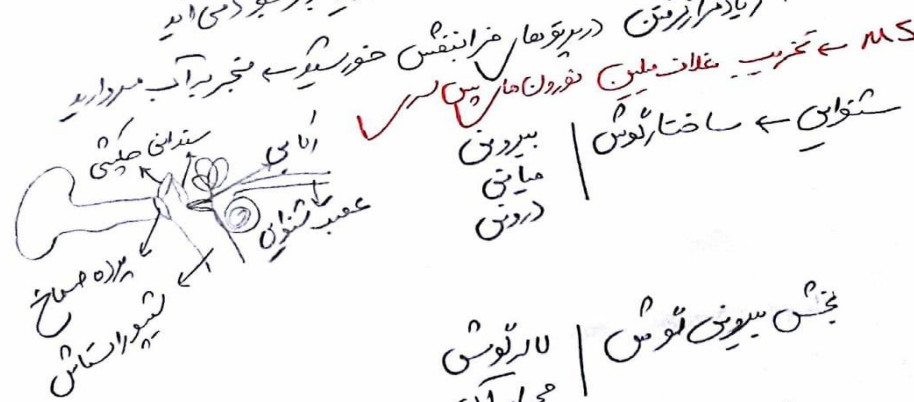 زیاد قرار گرفتن در پرتوهای فرابنفش خورشید ← منجر به آب مروارید
MS ← تخریب غلاف میلین نورون‌های
شنوایی ← ساختار گوش
بیرونی
میانی
درونی
سندانی چکشی
رکابی
عصب شنوایی
پرده صماخ
شیپور استاش
بخش بیرونی گوش
لاله گوش